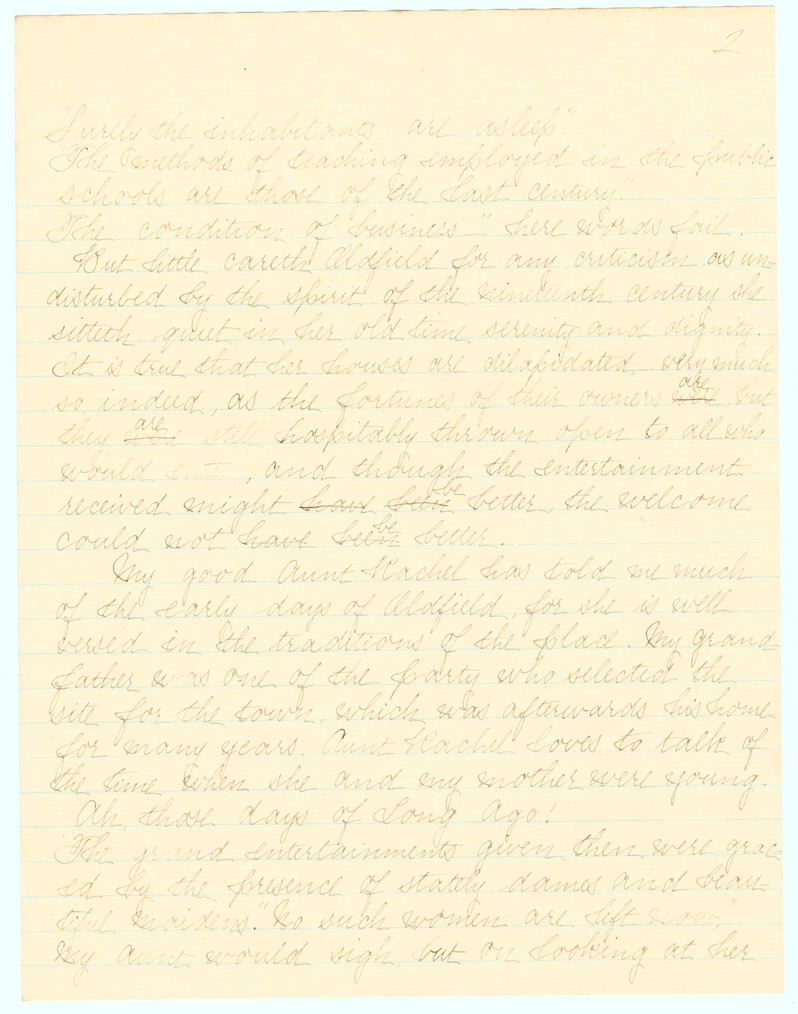 2
"Surely the inhabitants are asleep".
"The methods of teaching employed in the public
schools are those of the last century".
"The condition of business—" here words fail.
But little careth Oldfield for any criticism as un-
disturbed by the spirit of the nineteenth century she
sitteth quiet in her old time serenity and dignity.
It is true that her houses are dilapidated, very much
are
so indeed, as the fortunes of their owners were, but
are
they were still hospitably thrown open to all who
would, and though the entertainment
be
received might have been better, the welcome
be
could not have been better.
My good Aunt Rachel has told me much
of the early days of Oldfield, for she is well
versed in the traditions of the place. My grand-
father was one of the party who selected the
site for the town, which was afterwards his home
for many years. Aunt Rachel loves to talk of
the time when she and my mother were young.
Ah, those days of Long Ago!
"The grand entertainments given then were grac-
ed by the presence of stately dames and beau-
tiful maidens." No such women are left now,"
My aunt would sigh, but on looking at her